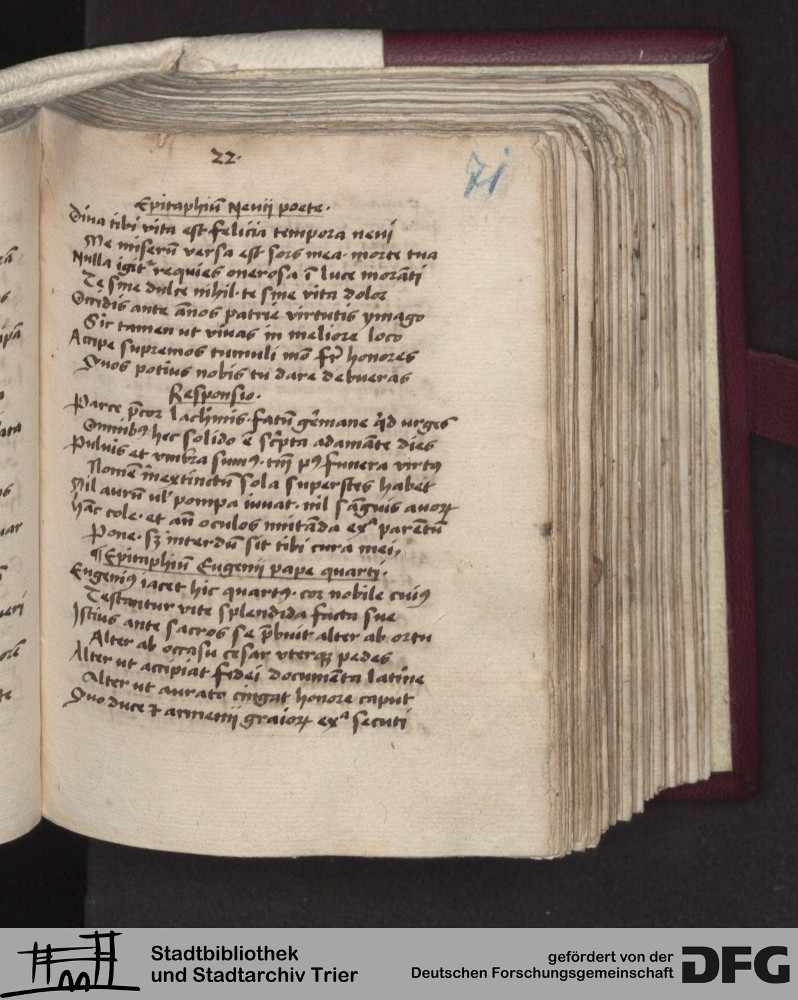 22.
71
Epitaphiũ Nevii poete.
Diva tibi vita est felicia tempora nevi
Me miserũ versa est sors mea morte tua
Nulla igit̃ requies onerosa ĩ luce morãti
Te sine dulce nihil te sine vita dolor
Occidis ante ãnos patrie virtutis ymago
Sic tamen ut vivas in meliore loco
Accipe supremos tumuli mõ fr̃ honores
Quos potius nobis tu dare debueras
Responsio.
Parce p̃cor lachrimis fatũ gẽmane q̇d urges
Omnibꝯ hec solido ẽ scripta adamãte dies
Pulvis et vmbra sumꝯ tm̃ pꝯ funera virtꝯ
Nomẽ inextinctũ sola superstes habet
Nil aurũ ul' pompa iuvat nil sãguis avoꝝ
Hãc cole et añ oculos imitãda exᵃ parẽtũ
Pone sꝫ interdũ sit tibi cura mei
¶ Epitaphiũ Eugenii pape quarti.
Eugeniꝯ iacet hic quartꝯ cor nobile cuiꝯ
Testantur vite splendida facta sue
Istius ante sacros se p̃buit alter ab ortu
Alter ab occasu cesar uterqꝫ pedes
Alter ut accipiat fidei documẽta latine
Alter ut aurato cingat honore caput
Quo duce ⁊ armenii graioꝝ exᵃ secuti
Stadtbibliothek
und Stadtarchiv Trier
gefördert von der
Deutschen Forschungsgemeinschaft
DFG